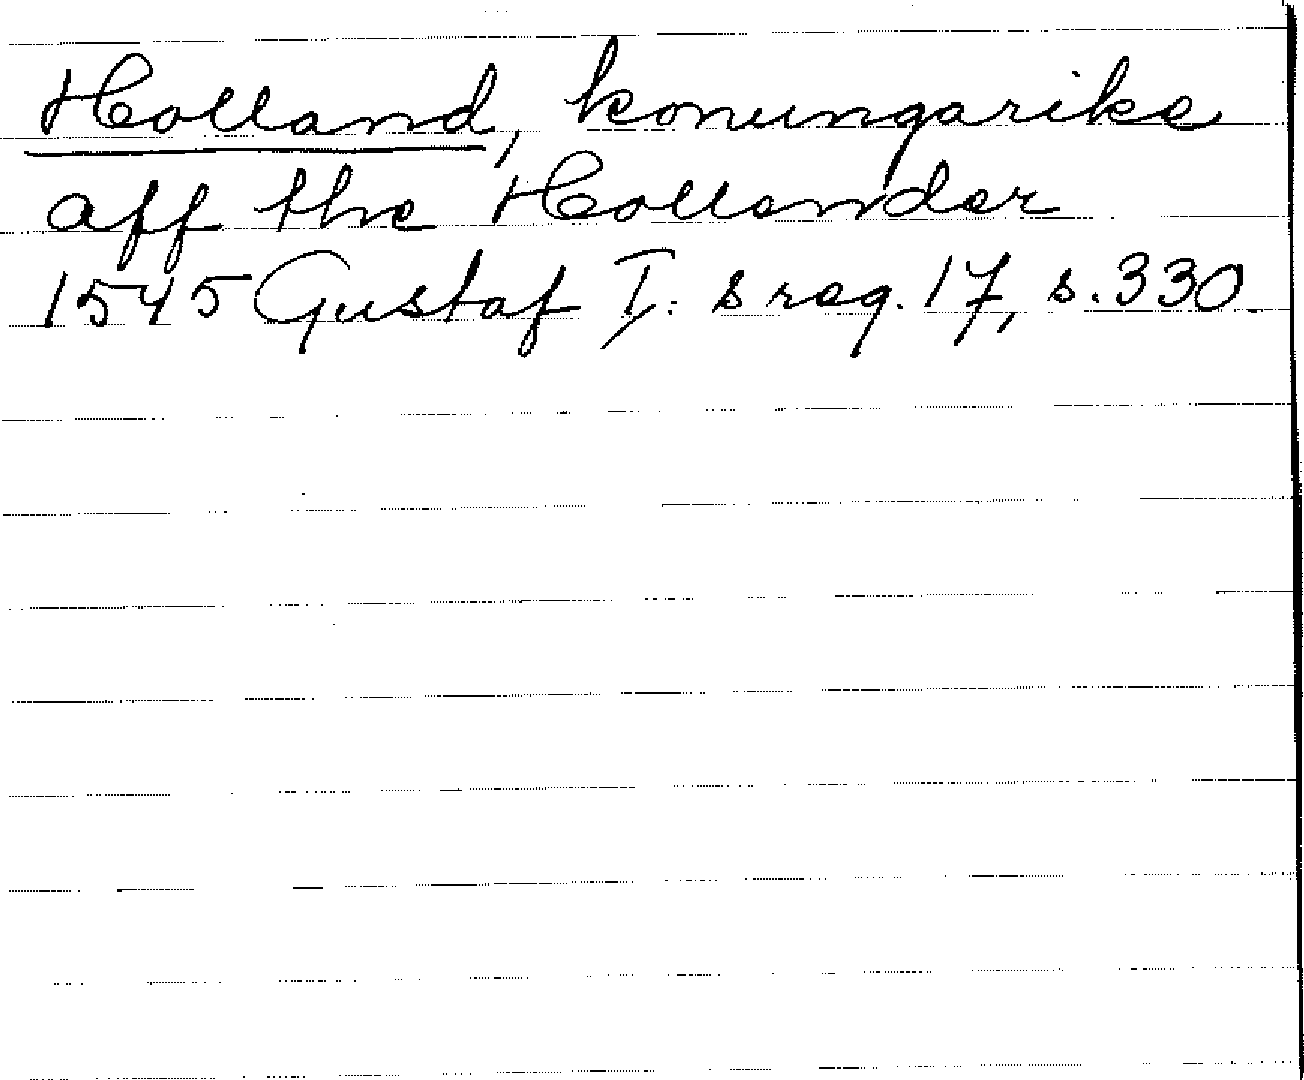 Holland, konungarike
aff the Hollender
1545 Gustaf I:s reg. 17, s. 330.